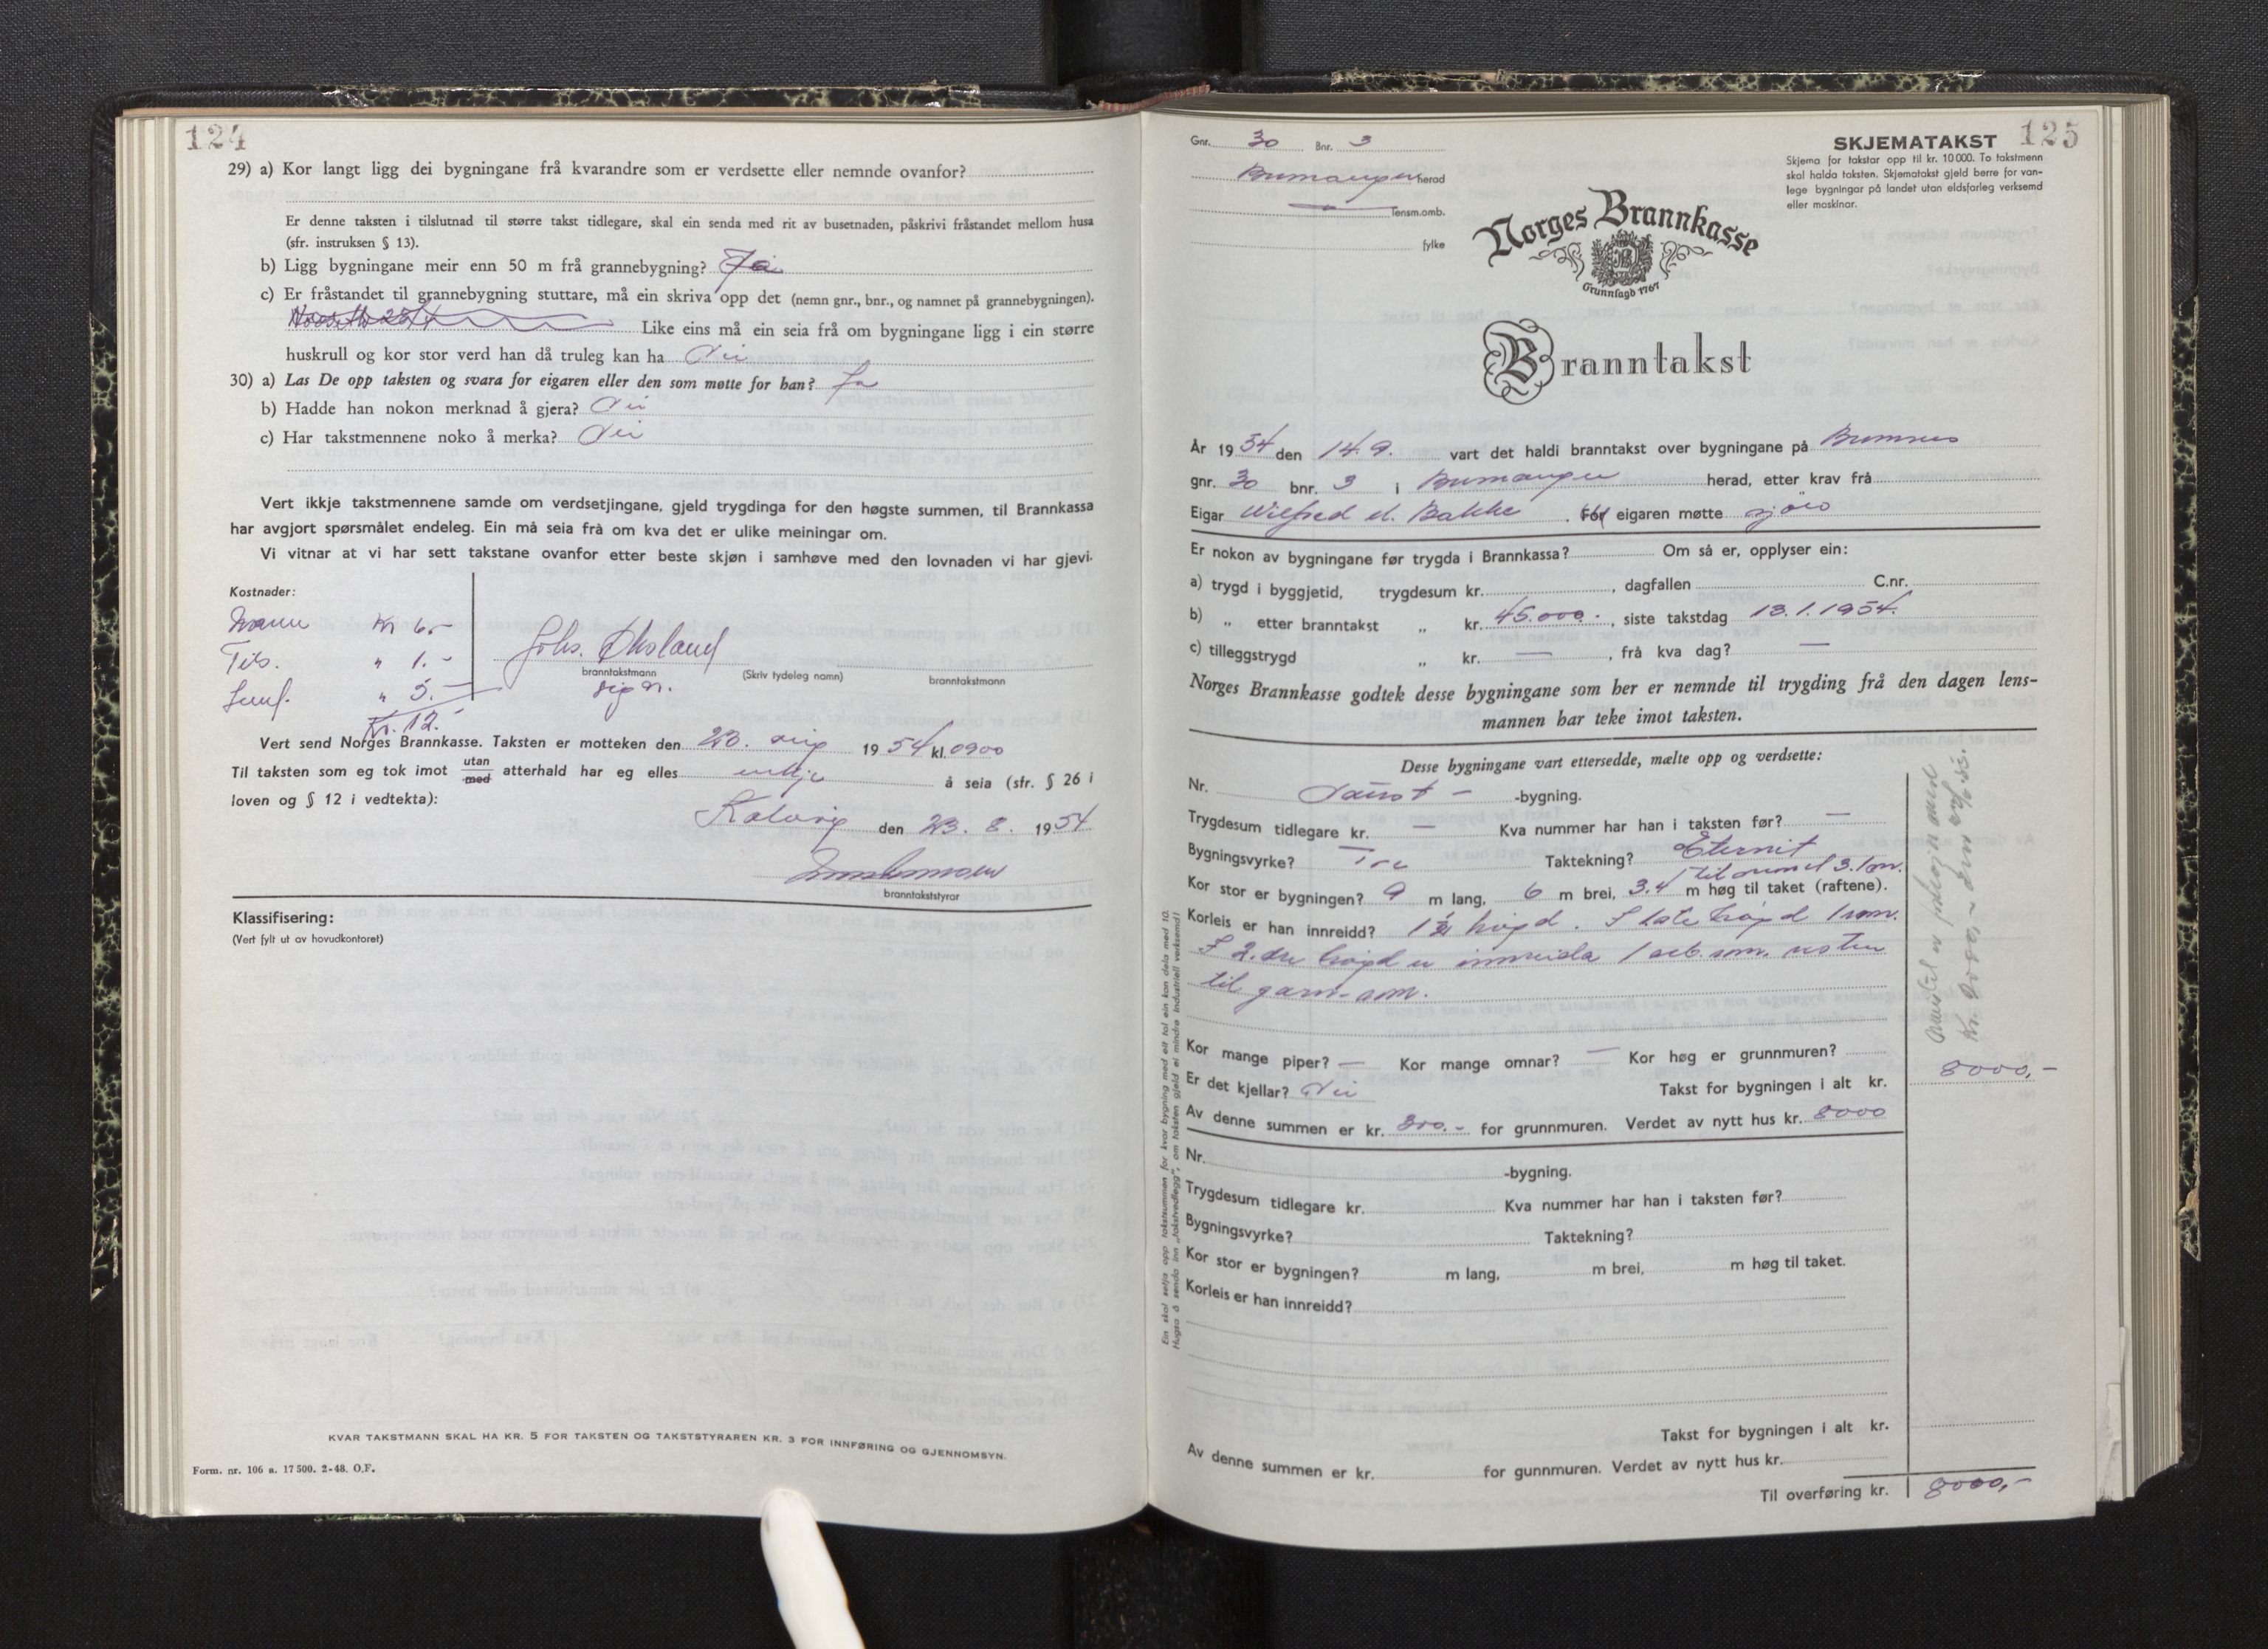 124
29) a) Kor langt ligg dei bygningane frå kvarandre som er verdsette eller nemnde ovanfor?
Er denne taksten i tilslutnad til større takst tidlegare, skal ein senda med rit av busetnaden, påskrivi fråstandet mellom husa
(sfr. instruksen § 13).
b) Ligg bygningane meir enn 50 m frå grannebygning? Ja
c) Er fråstandet til grannebygning stuttare, må ein skriva opp det (nemn gnr., bnr., og namnet på grannebygningen).
Like eins må ein seia frå om bygningane ligg i ein større
huskrull og kor stor verd han då truleg kan ha Nei
30) a) Las De opp taksten og svara for eigaren eller den som møtte for han? Ja
b) Hadde han nokon merknad å gjera? Nei
c) Har takstmennene noko å merka? Nei
Vert ikkje takstmennene samde om verdsetjingane, gjeld trygdinga for den høgste summen, til Brannkassa
har avgjort spørsmålet endeleg. Ein må seia frå om kva det er ulike meiningar om.
Vi vitnar at vi har sett takstane ovanfor etter beste skjøn i samhøve med den lovnaden vi har gjevi.
Kostnader:
Mann Kr 6.-
" 1.-
" 5.-
Kr. 12.-
Johs.
branntakstmann (Skriv tydeleg namn) branntakstmann
sign.
Vert send Norges Brannkasse. Taksten er motteken den 23. aug 1954 kl. 0900
Til taksten som eg tok imot utan/med atterhald har eg elles å seia (sfr. § 26 i
loven og § 12 i vedtekta):
Kalvåg den 23. 8. 1954
branntakststyrar
Klassifisering:
(Vert fylt ut av hovudkontoret)
KVAR TAKSTMANN SKAL HA KR. 5 FOR TAKSTEN OG TAKSTSTYRAREN KR. 3 FOR INNFØRING OG GJENNOMSYN.
Form. nr. 106 a. 17 500. 2-48. O.F.
Gnr. 30 Bnr. 3
Bremanger herad
lensm.omb.
fylke
SKJEMATAKST 125
Skjema for takstar opp til kr. 10 000. To takstmenn
skal halda taksten. Skjematakst gjeld berre for van-
lege bygningar på landet utan eldsfarleg verksemd
eller maskinar.
Norges Brannkasse
Grunnlagd 1767
Branntakst
År 1954 den 14. 9. vart det haldi branntakst over bygningane på Bremnes
gnr. 30 bnr. 3 i Bremanger herad, etter krav frå
Eigar Wilfred M. Bakke. For eigaren møtte sjølv
Er nokon av bygningane før trygda i Brannkassa? Om så er, opplyser ein:
a) trygd i byggjetid, trygdesum kr. , dagfallen C.nr.
b) „ etter branntakst „ kr. 45.000.-, siste takstdag 13.1.1954.
c) tilleggstrygd „ kr. — , frå kva dag? —
Norges Brannkasse godtek desse bygningane som her er nemnde til trygding frå den dagen lens-
mannen har teke imot taksten.
Desse bygningane vart ettersedde, mælte opp og verdsette:
Nr. Naust - -bygning.
Trygdesum tidlegare kr. — Kva nummer har han i taksten før? —
Bygningsvyrke? Tre Taktekning? Eternit
til 3.1m.
Kor stor er bygningen? 9 m lang, 6 m brei, 3.4 m høg til taket (raftene).
Korleis er han innreidd? 1 1/2 høgd. I 1ste høgd 1 rom.
I 2. dre høgd er innreida 1 arb. rom. resten
til garn-rom.
Kor mange piper? — Kor mange omnar? — Kor høg er grunnmuren?
Er det kjellar? Nei Takst for bygningen i alt kr. 8000,-
Av denne summen er kr. 800.- for grunnmuren. Verdet av nytt hus kr. 8000
Nr. -bygning.
Trygdesum tidlegare kr. Kva nummer har han i taksten før?
Bygningsvyrke? Taktekning?
Kor stor er bygningen? m lang, m brei, m høg til taket.
Korleis er han innreidd?
Takst for bygningen i alt kr.
Av denne summen er kr. for gunnmuren. Verdet av nytt hus kr.
Til overføring kr. 8000,-
Ein skal setja opp takstsummen for kvar bygning med eit tal ein kan dela med 10.
Hugsa å senda inn „takstvedlegg", om taksten gjeld ei mindre industriell verksemd!